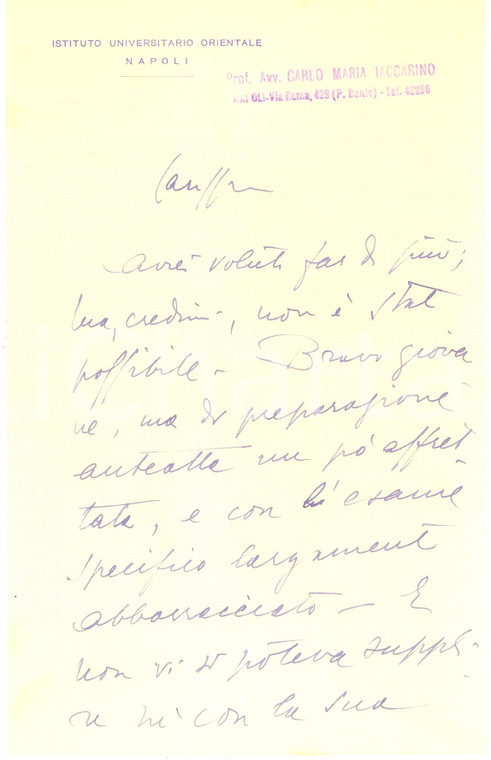 ISTITUTO UNIVERSITARIO ORIENTALE
NAPOLI
Prof. Avv. CARLO MARIA IACCARINO
Via Roma, 429 (P. Dante) - Tel. 42256
Avrei voluto far di più;
ma, credimi, non è stat
possibile - Bravo giova
ne, ma di preparazione
un pò affret
tata, e con esame
specifico largament
abborracciato - E
non vi si poteva suppli-
re nè con la sua